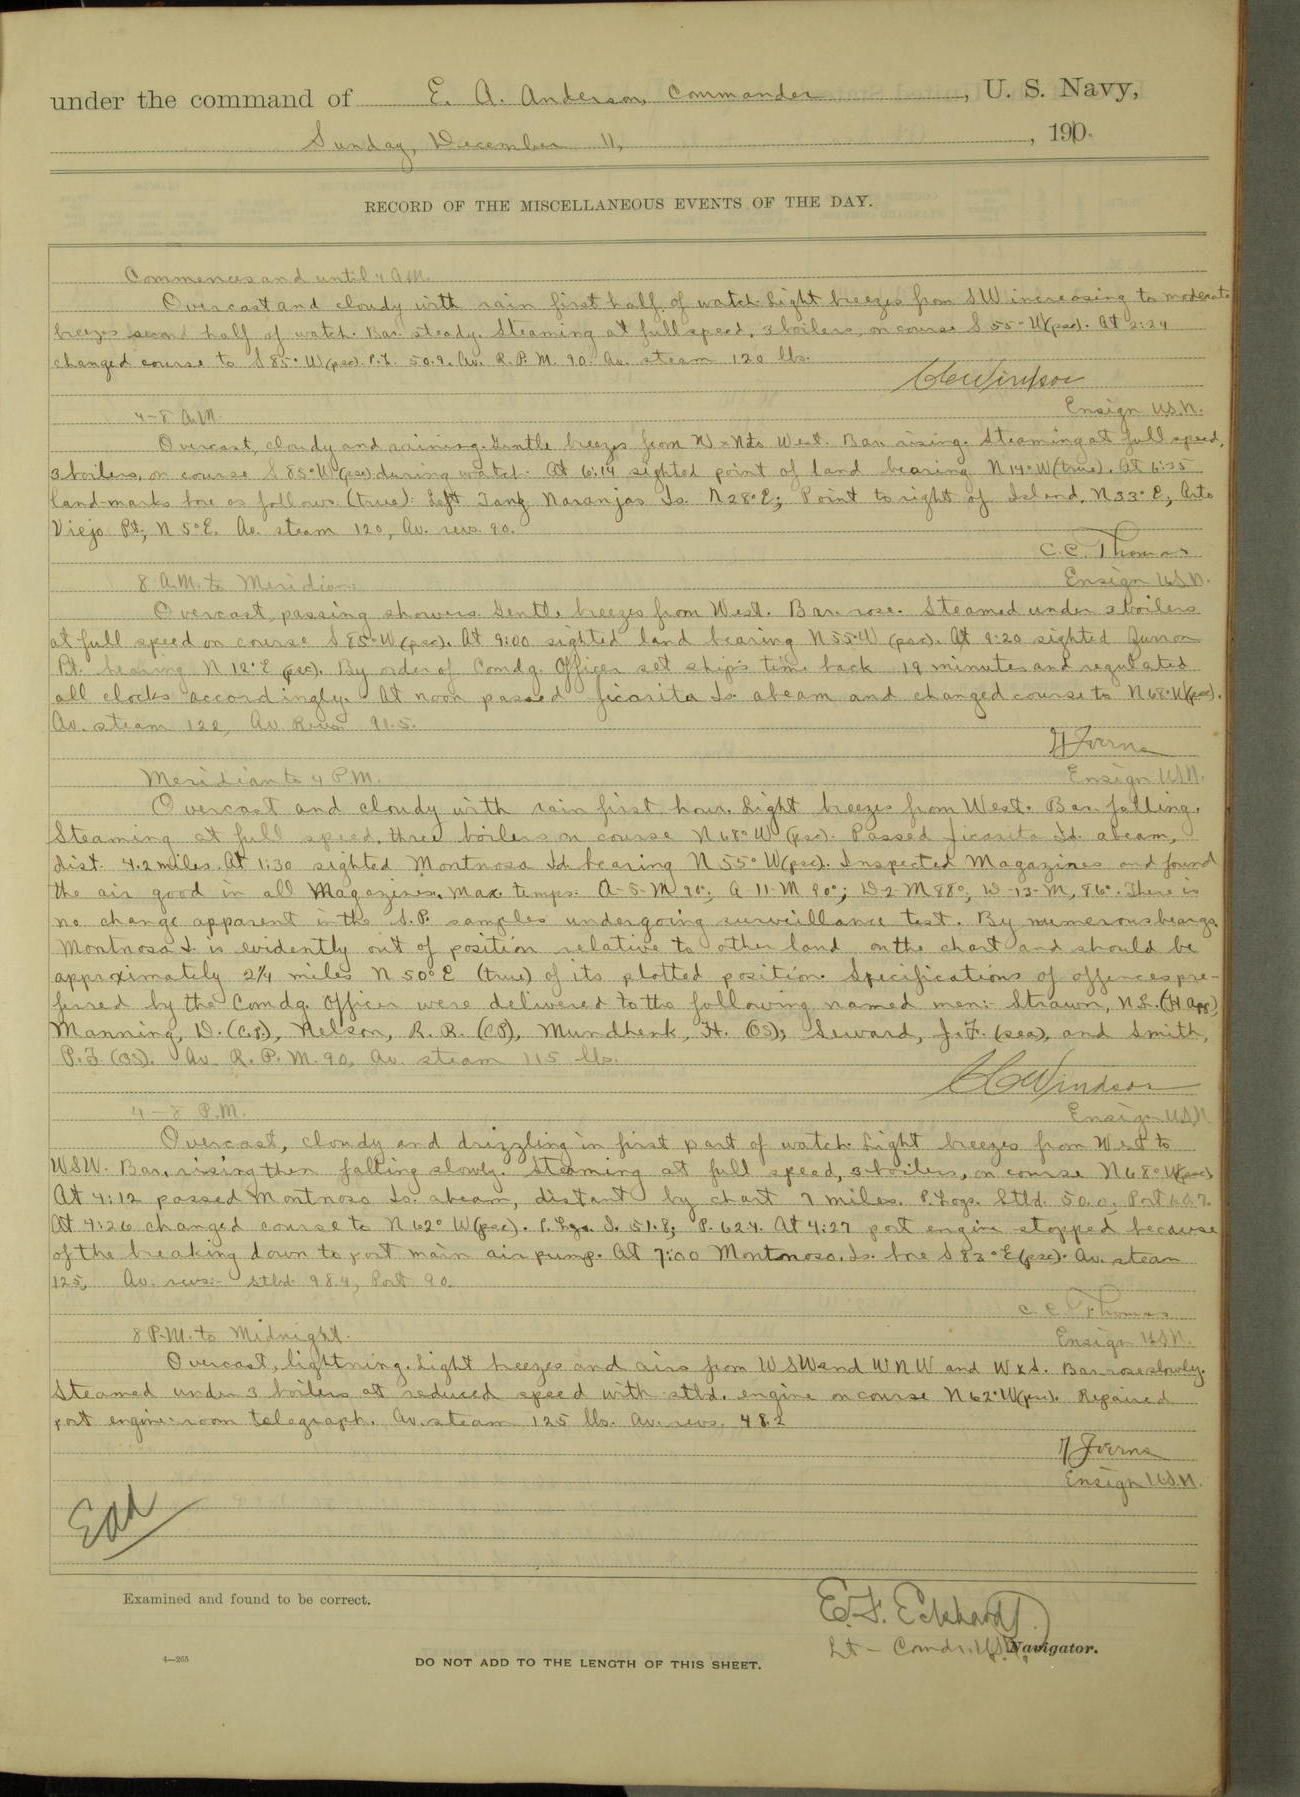 under the command of E. A. Anderson, Commander, U. S. Navy,
Sunday, December 11, 1910.
RECORD OF THE MISCELLANEOUS EVENTS OF THE DAY.
Commences and until 4 A.M.
Overcast and cloudy with rain first half of watch. Light breezes from SW increasing to moderate
breezes second half of watch. Bar. steady. Steaming at full speed, 3 boilers, on course S 55° W (psc). At 2:24
changed course to S 85° W (psc). P.L. 50.9. Av. R.P.M. 90. Av. steam 120 lbs.
C C Windsor
Ensign U.S.N.
4-8 A.M.
Overcast, cloudy and raining. Gentle breezes from to West. Bar. rising. Steaming at full speed,
3 boilers, on course S 85° W (psc) during watch. At 6:14 sighted point of land bearing N 14° W (true). At 6:35
landmarks bore as follows (true): Left Tang Naranjas Is. N 28° E; Point to right of Island, N 33° E; Arto
Viejo Pt; N 5° E. Av. steam 120, Av. revs. 90.
C. C. Thomas
Ensign U.S.N.
8 A.M. to Meridian
Overcast, passing showers. Gentle breezes from West. Bar. rose. Steamed under 3 boilers
at full speed on course S 85° W (psc). At 9:00 sighted land bearing N 55° W (psc). At 9:20 sighted
Pt. bearing N 12° E (psc). By order of Comdg. Officer set ship's time back 19 minutes and regulated
all clocks accordingly. At noon passed Jicarita Is. abeam and changed course to N 68° W (psc).
Av. steam 122, Av. Revs. 91.5.
Ensign U.S.N.
Meridian to 4 P.M.
Overcast and cloudy with rain first hour. Light breezes from West. Bar. falling.
Steaming at full speed, three boilers on course N 68° W (psc). Passed Jicarita Id. abeam,
dist. 4.2 miles. At 1:30 sighted Montnosa Id. bearing N 55° W (psc). Inspected Magazines and found
the air good in all Magazines. Max. temps: A-5-M 90°; A-11-M 90°; D-2-M 88°; D-13-M, 86°. There is
no change apparent in the S.P. samples undergoing surveillance test. By numerous bearings
Montnosa I. is evidently out of position relative to other land on the chart and should be
approximately 2¼ miles N 50° E (true) of its plotted position. Specifications of offences pre-
ferred by the Comdg. Officer were delivered to the following named men:- Strawn, N.L. (H App),
Manning, D. (C.P.), Nelson, R. R. (CP), Mundhenk, H. (OS); Seward, J. F. (sea), and Smith,
P.F. (OS). Av. R. P. M. 90, Av. steam 115 lbs.
C C Windsor
Ensign U.S.N.
4-8 P.M.
Overcast, cloudy and drizzling in first part of watch. Light breezes from West to
WSW. Bar. rising then falling slowly. Steaming at full speed, 3 boilers, on course N 68° W (psc)
At 4:12 passed Montnoso Is. abeam, distant by chart 7 miles. P. Logs. Stbd. 50.0, Port
At 4:26 changed course to N 62° W (psc). P. Lgs. S. 51.8; P. 62.4. At 4:27 port engine stopped because
of the breaking down to port main air pump. At 7:00 Montonoso. Is. bore S 83° E (psc). Av. steam
125, Av. revs:- stbd. 98.4, Port 90.
C. C. Thomas
Ensign U.S.N.
8 P.M. to Midnight.
Overcast, lightning. Light breezes and airs from WSW and WNW and WxS. Bar. rose slowly.
Steamed under 3 boilers at reduced speed with stbd. engine on course N 62° W (psc). Repaired
port engine-room telegraph. Av. steam 125 lbs. Av. revs. 48.2
Ensign U.S.N.
EAA
Examined and found to be correct.
E. F. Eckhardt
Lt-Comdr. U.S.N., Navigator.
4—265
DO NOT ADD TO THE LENGTH OF THIS SHEET.